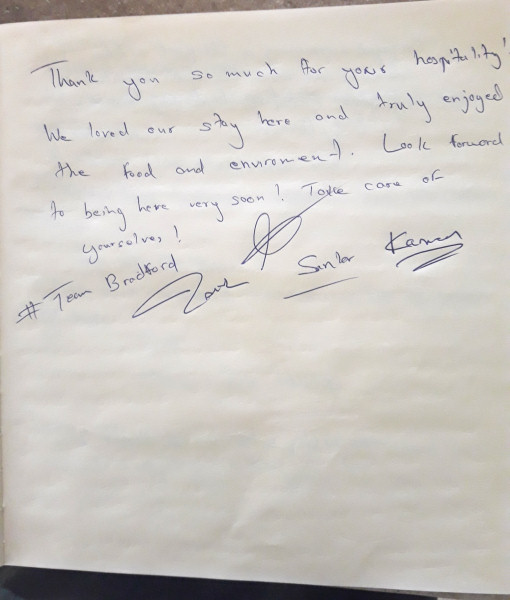 Thank you so much for your hospitality!
We loved our stay here and truly enjoyed
the food and enviroment. Look forward
to being here very soon! Take care of
yourselves!
# Team Bradford